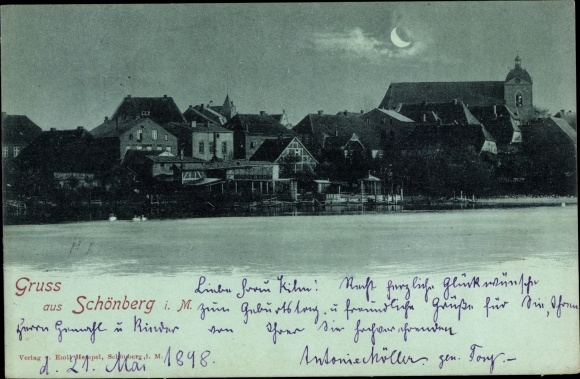 Gruss
aus Schönberg i. M.
Liebe Frau Kilm! Recht herzliche Glückwünsche
zum Geburtstag, u freundliche Grüße für Sie, Ihren
Herrn Gemahl u Kinder von Ihrer Sie hochverehrenden
Antonie Möller. geb.
Verlag v. Emil Hempel, Schönberg i. M.
d. 21. Mai 1898.